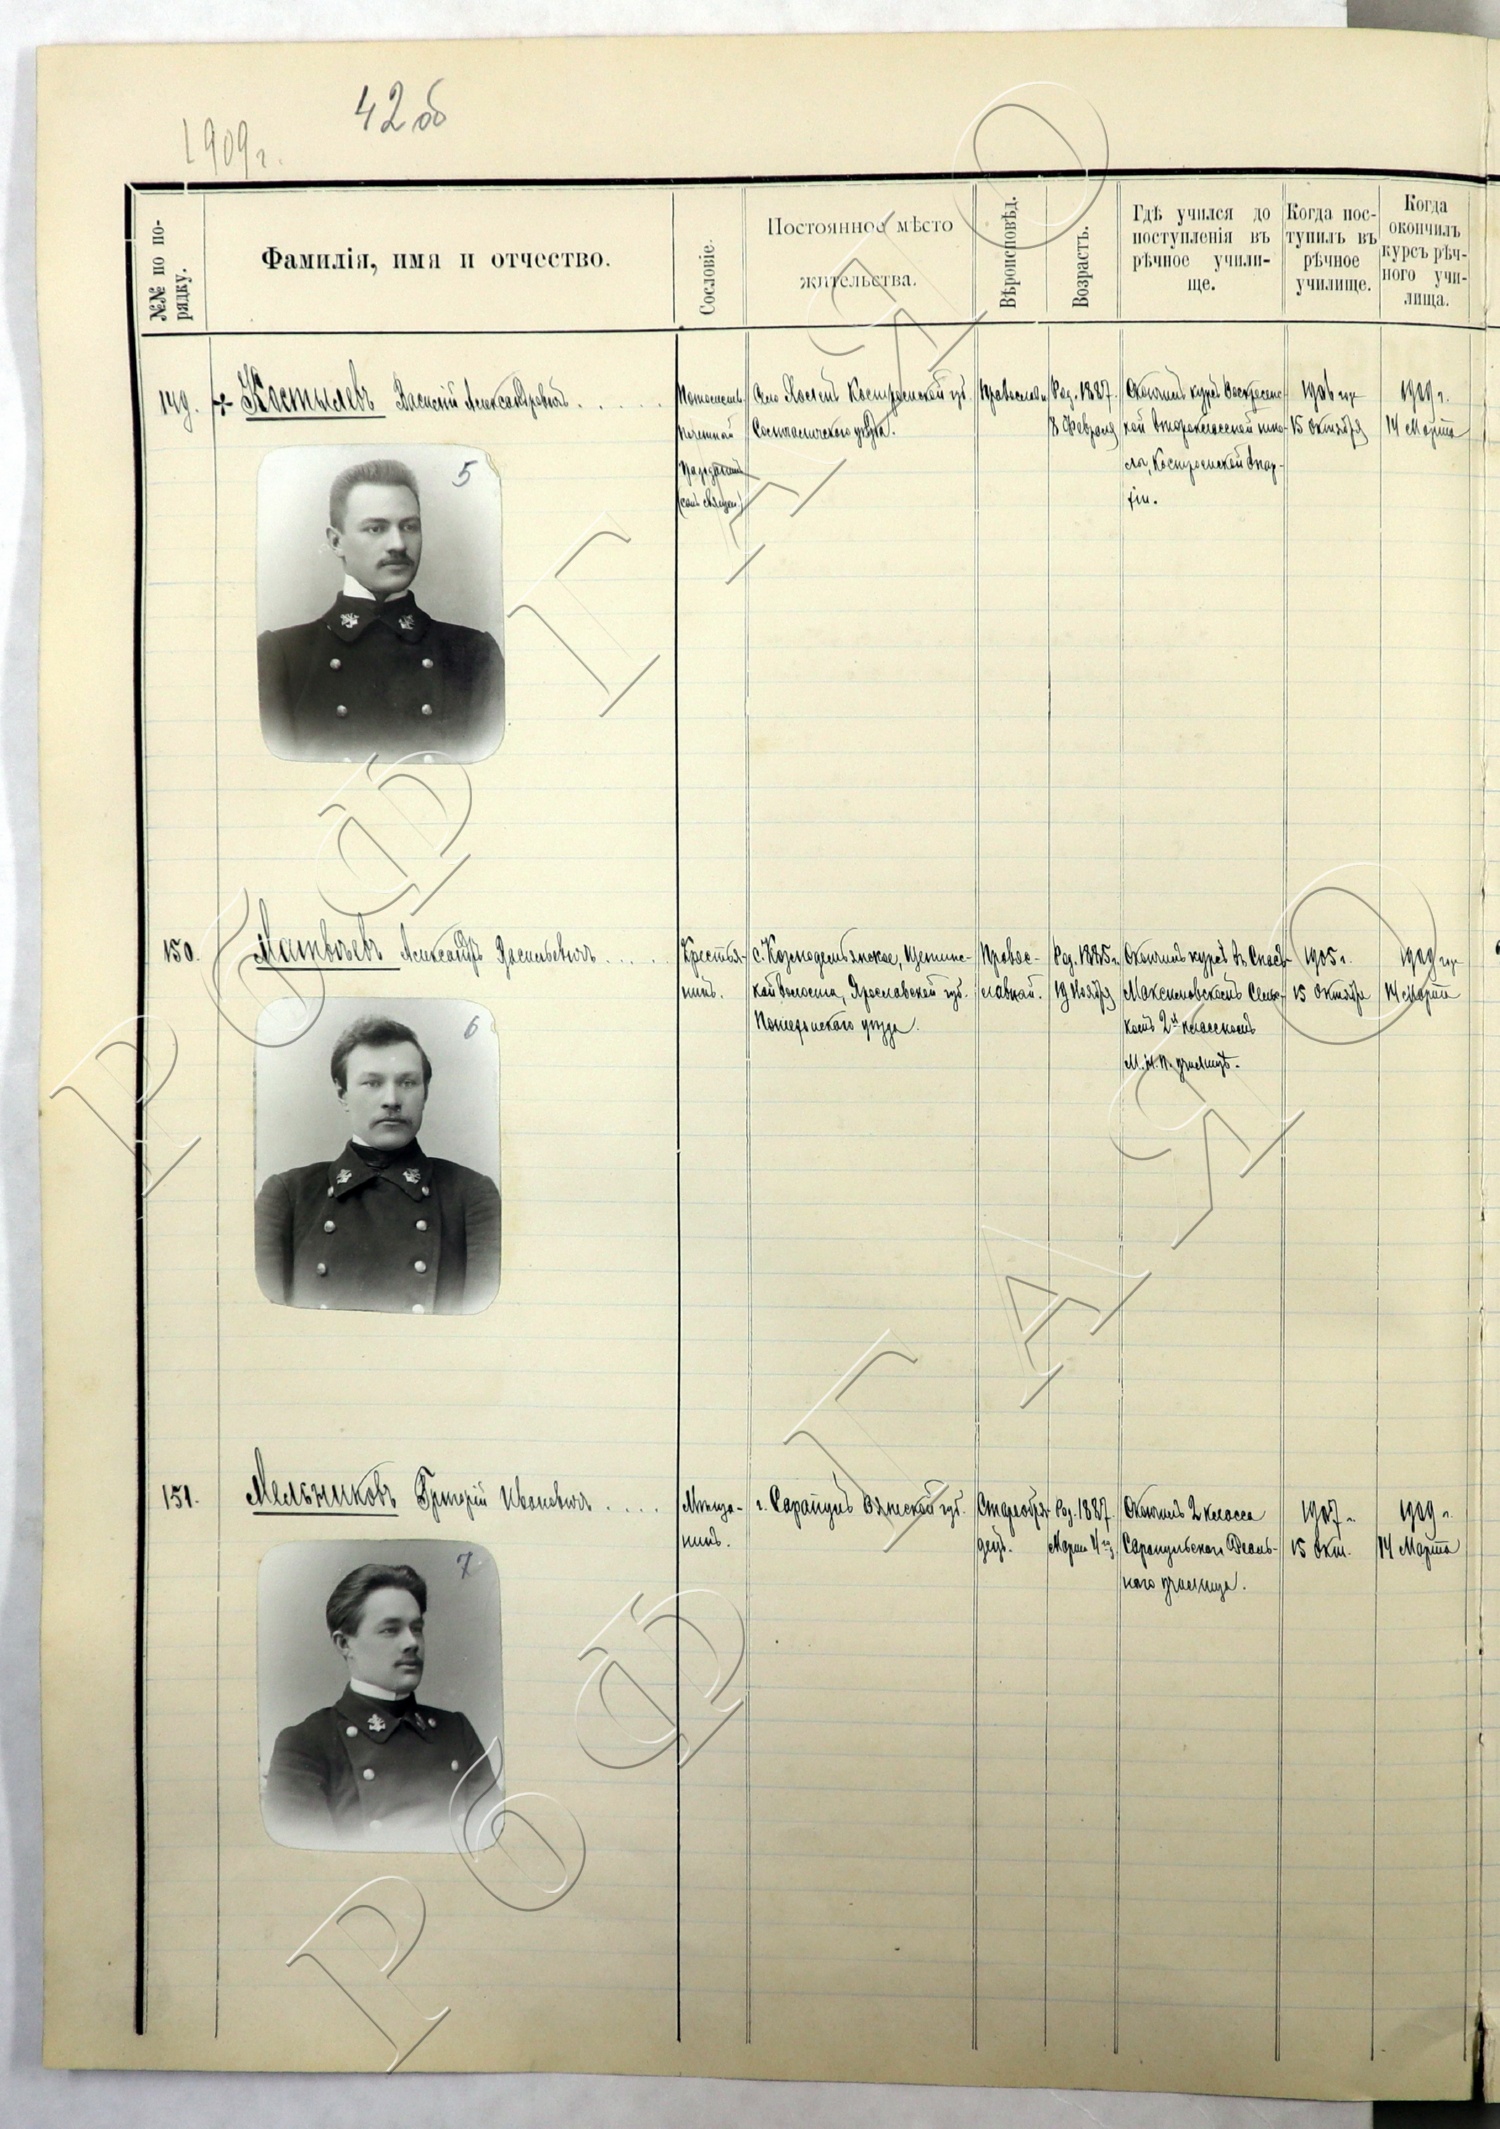 1909 г.
42 об
№№ по по-
рядку.
Фамилія, имя и отчество.
Сословіе.
Постоянное мѣсто
жительства.
Вѣроисповѣд.
Возрастъ.
Гдѣ учился до
поступленія въ
рѣчное учили-
ще.
Когда пос-
тупилъ въ
рѣчное
училище.
Когда
окончилъ
курсъ рѣч-
ного учи-
лища.
149. + Костылевъ Василій Александровичъ
5
Село Костромской губ.
уѣзда.
Православн.
Род. 1887
Февраля
Окончилъ курсъ Воскресенс-
кой второклассной шко-
лы, Костромской Епар-
хіи.
1906 г.
15 Октября
1909 г.
14 Марта
150. Матвѣевъ Александръ Васильевичъ
6
Крестья-
нинъ.
с. Козмодемьянское, Щетинс-
кой волости, Ярославской губ.
Пошехонскаго уѣзда.
Правос-
лавный.
Род. 1885 г.
19 Ноября
Окончилъ курсъ въ Спасъ-
Максимовскомъ Сельс-
комъ 2хъ классномъ
М. Н. П. училищѣ.
1905 г.
15 Октября
1909 г.
14 Марта
151. Мельниковъ Григорій Ивановичъ
7
Мѣща-
нинъ.
г. Сарапулъ Вятской губ.
Старообря-
децъ.
Род. 1887
Марта
Окончилъ 2 класса
Сарапульскаго Реаль-
наго училища.
1907 г.
15 Окт.
1909 г.
14 Марта
РОФ ГАЯО
РОФ ГАЯО